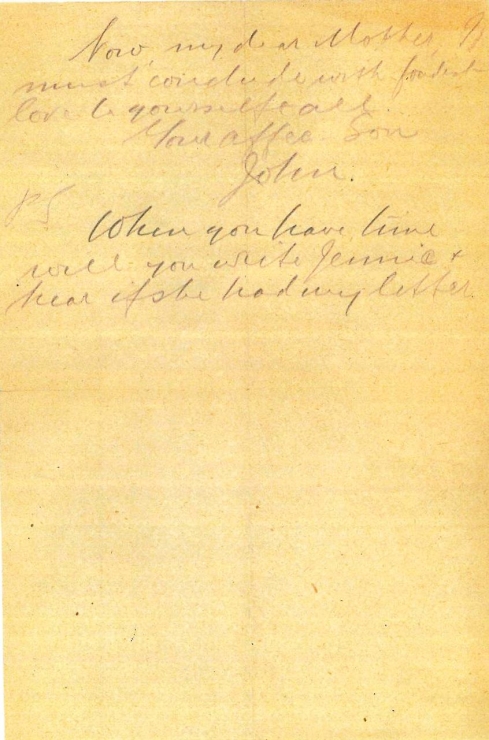 Now my dear Mother, I
must conclude with fondest
love to yourself & all.
Your affec. Son
John.
PS
When you have time
will you write Jennie &
hear if she had my letter.